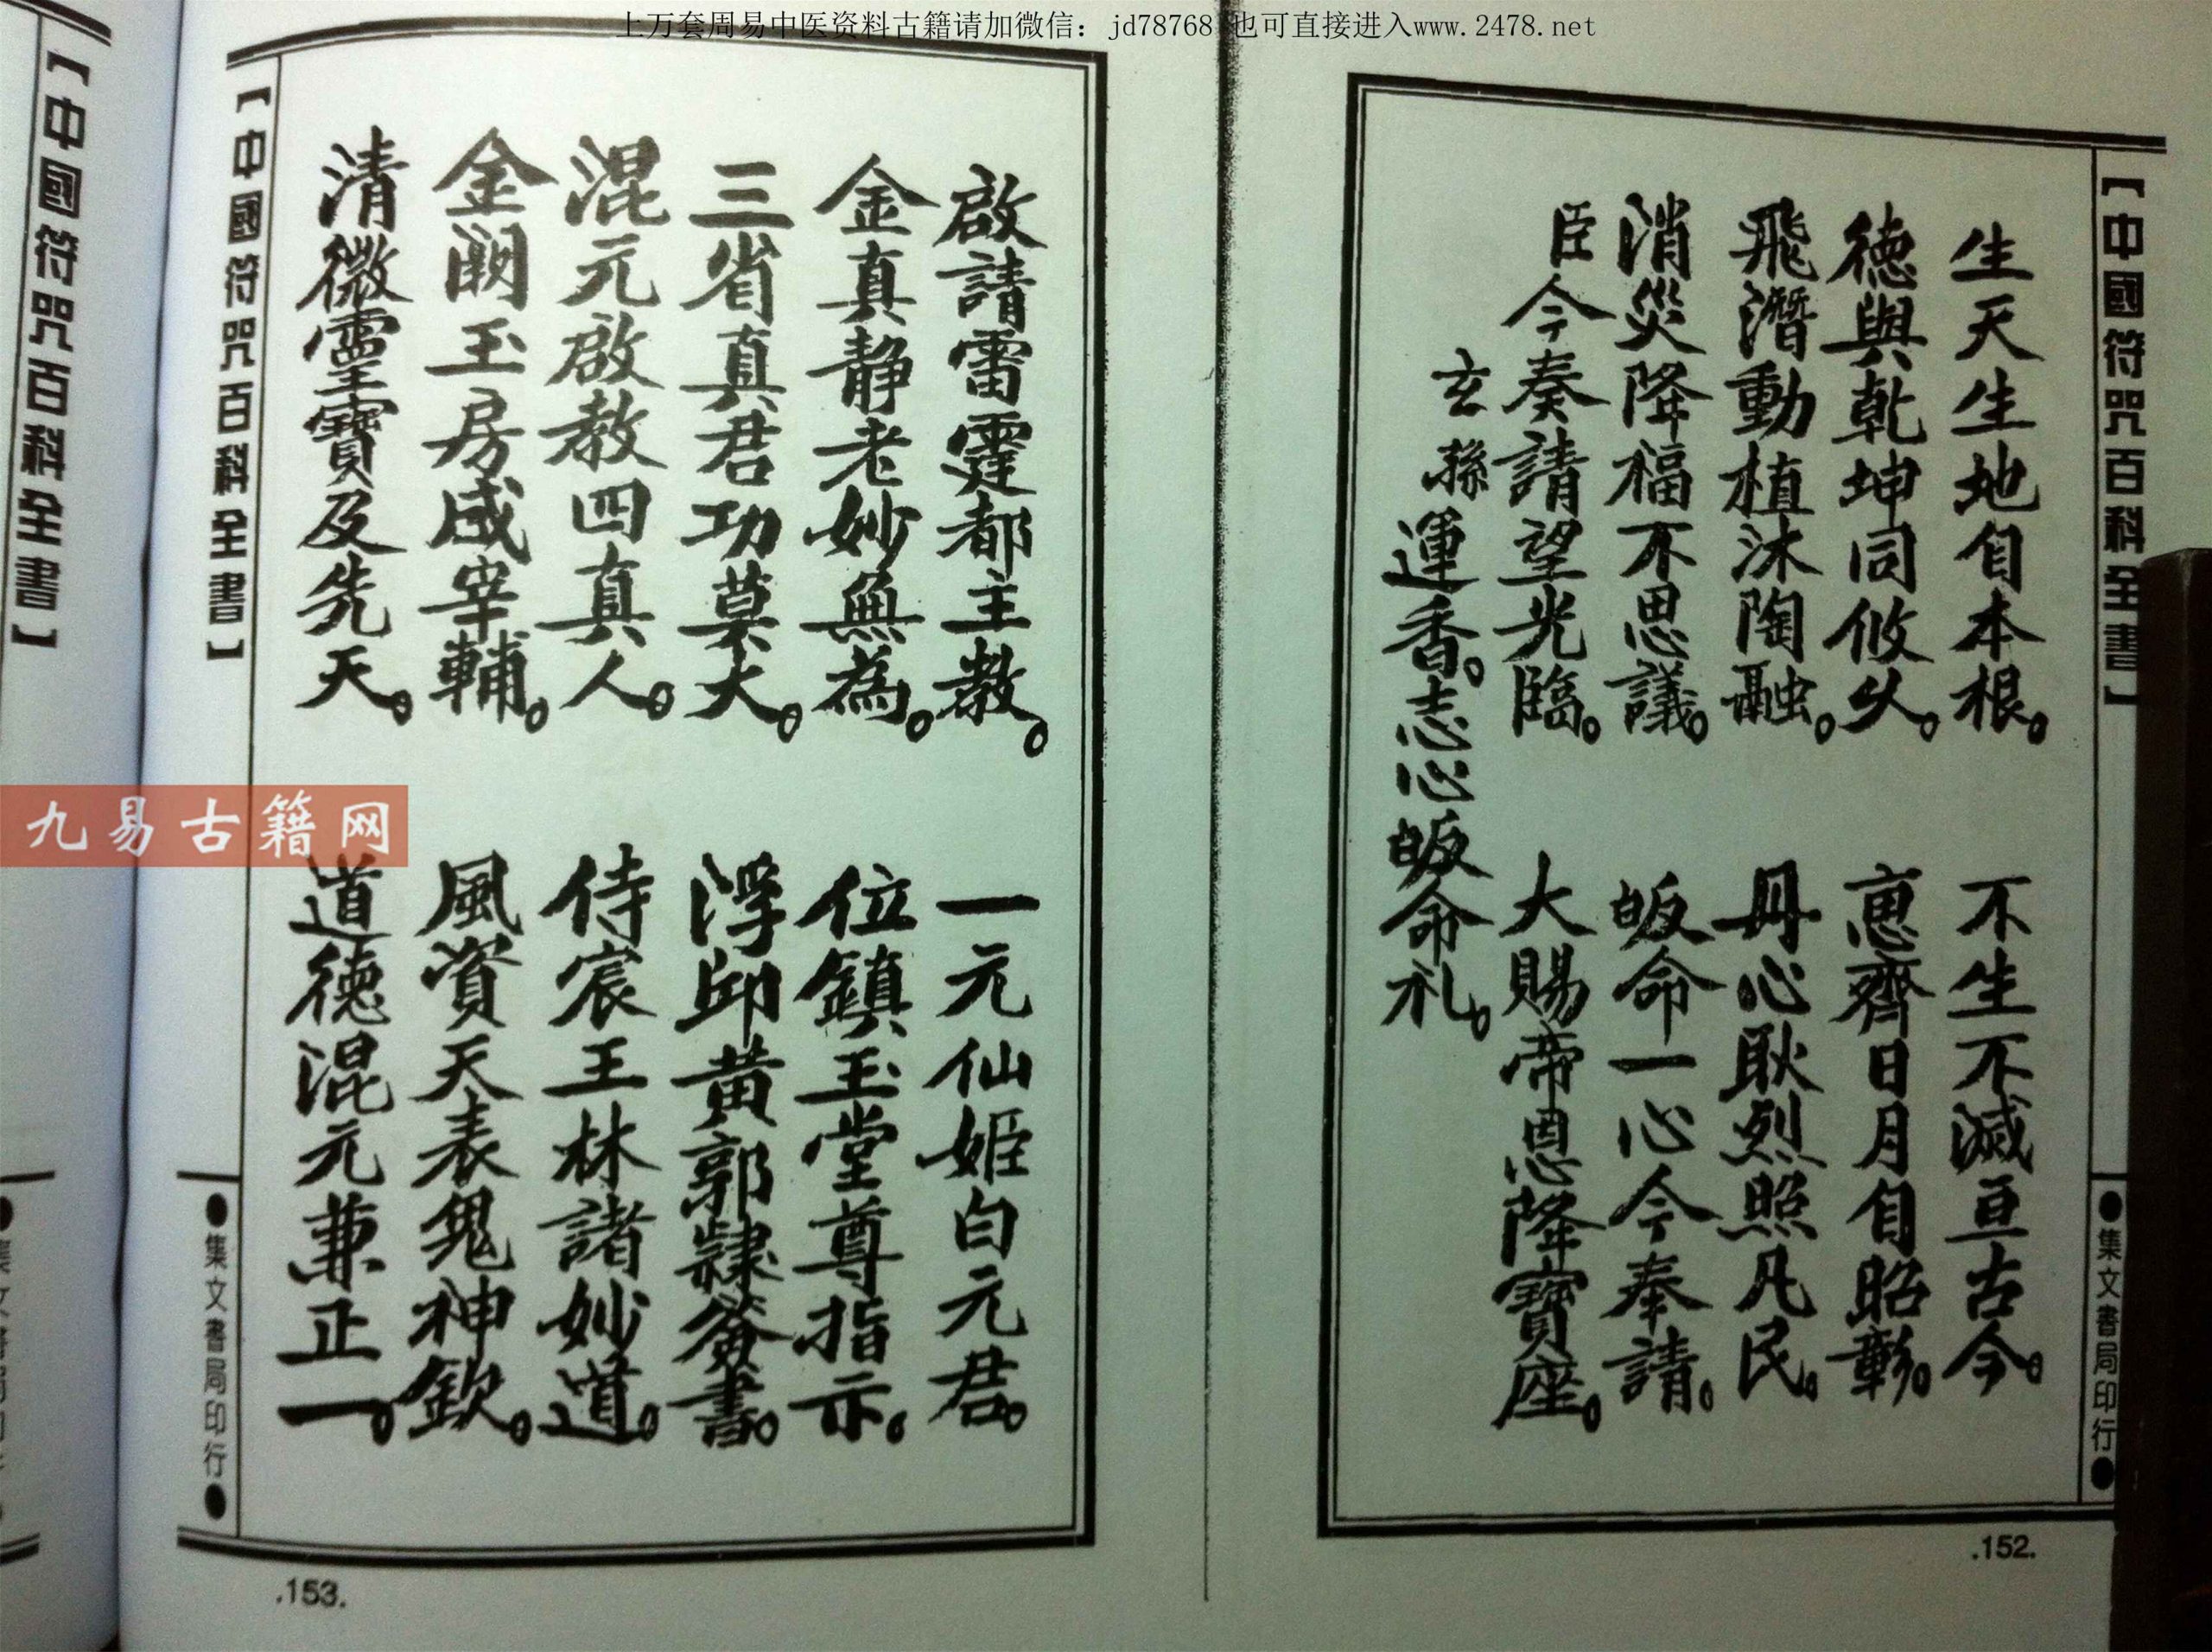 上万套周易中医资料古籍请加微信：jd78768 也可直接进入www.2478.net
【中國符咒百科全書】
●集文書局印行●
生天生地自本根。不生不滅亘古今。
德與乾坤同攸久。惠齊日月自昭彰。
飛潛動植沐陶融。丹心耿烈照凡民。
消災降福不思議。皈命一心今奉請。
臣今奏請望光臨。大賜帝恩降寶座。
玄孫運香。志心皈命礼。
.152.
啟請雷霆都主教。一元仙姬白元君。
金真靜老妙無為。位鎮玉堂尊指示。
三省真君功莫大。浮邱黃郭隸簽書。
混元啟教四真人。侍宸王林諸妙道。
金闕玉房咸宰輔。風資天表鬼神欽。
清微靈寶及先天。道德混元兼正一。
【中國符咒百科全書】
●集文書局印行●
.153.
【中國符咒百科全書】
九易古籍网